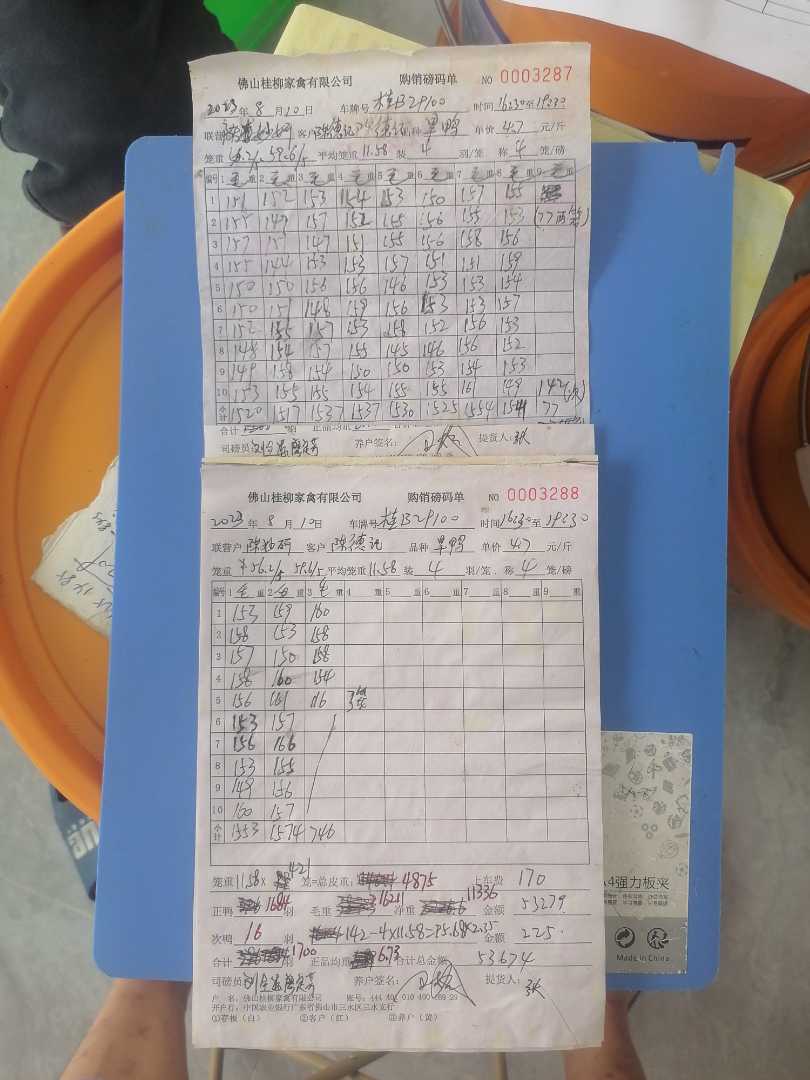 佛山桂柳家禽有限公司 购销磅码单 NO 0003287
2023年8月10日 车牌号 桂B29100 时间 16:30至19:30
客户 陈德记 品种 旱鸭 单价 4.7 元/斤
笼重 56.2/5 59.6/5 平均笼重 11.58 装 4 羽/笼 称 4 笼/磅
编号 1 毛重 2 毛重 3 毛重 4 毛重 5 毛重 6 毛重 7 毛重 8 毛重 9 毛重
1 151 152 153 154 153 150 157 155
2 155 149 157 152 145 156 155 153 (77两笼)
3 157 151 147 151 155 156 158 156
4 155 144 153 153 157 151 151 159
5 150 150 156 156 146 153 153 154
6 150 151 148 159 156 153 153 157
7 152 155 157 153 158 152 156 153
8 148 154 157 155 145 146 156 152
9 149 158 154 150 150 153 154 153
10 153 155 155 154 155 155 161 149 142(次)
小计 1520 1517 1537 1537 1530 1525 1554 1541 77
合计
司磅员 养户签名: 提货人: 张
佛山桂柳家禽有限公司 购销磅码单 NO 0003288
2023年8月10日 车牌号 桂B29100 时间 16:30至19:30
联营户 客户 陈德记 品种 旱鸭 单价 4.7 元/斤
笼重 56.2/5 59.6/5 平均笼重 11.58 装 4 羽/笼. 称 4 笼/磅
编号 1 毛重 2 毛重 3 毛重 4 重 5 重 6 重 7 重 8 重 9 重
1 153 159 160
2 158 153 158
3 157 150 158
4 158 160 154
5 156 161 116 3笼
6 153 157
7 156 166
8 153 155
9 149 156
10 160 157
小计 1553 1574 746
421
笼重 11.58× 笼=总皮重: 4875 上车费 170
正鸭 1684 羽 毛重 16211 净重 11336 金额 53279
次鸭 16 羽 142-4×11.58=95.68×2.35 金额 225.
合计 1700 羽 正品均重 6.73 合计总金额 53674
司磅员 养户签名: 提货人: 张
户 名: 佛山桂柳家禽有限公司
开户行: 中国农业银行广东省佛山市三水区三水支行
①存根(白) ②客户(红) ③养户(黄)
A4强力板夹
Made in China